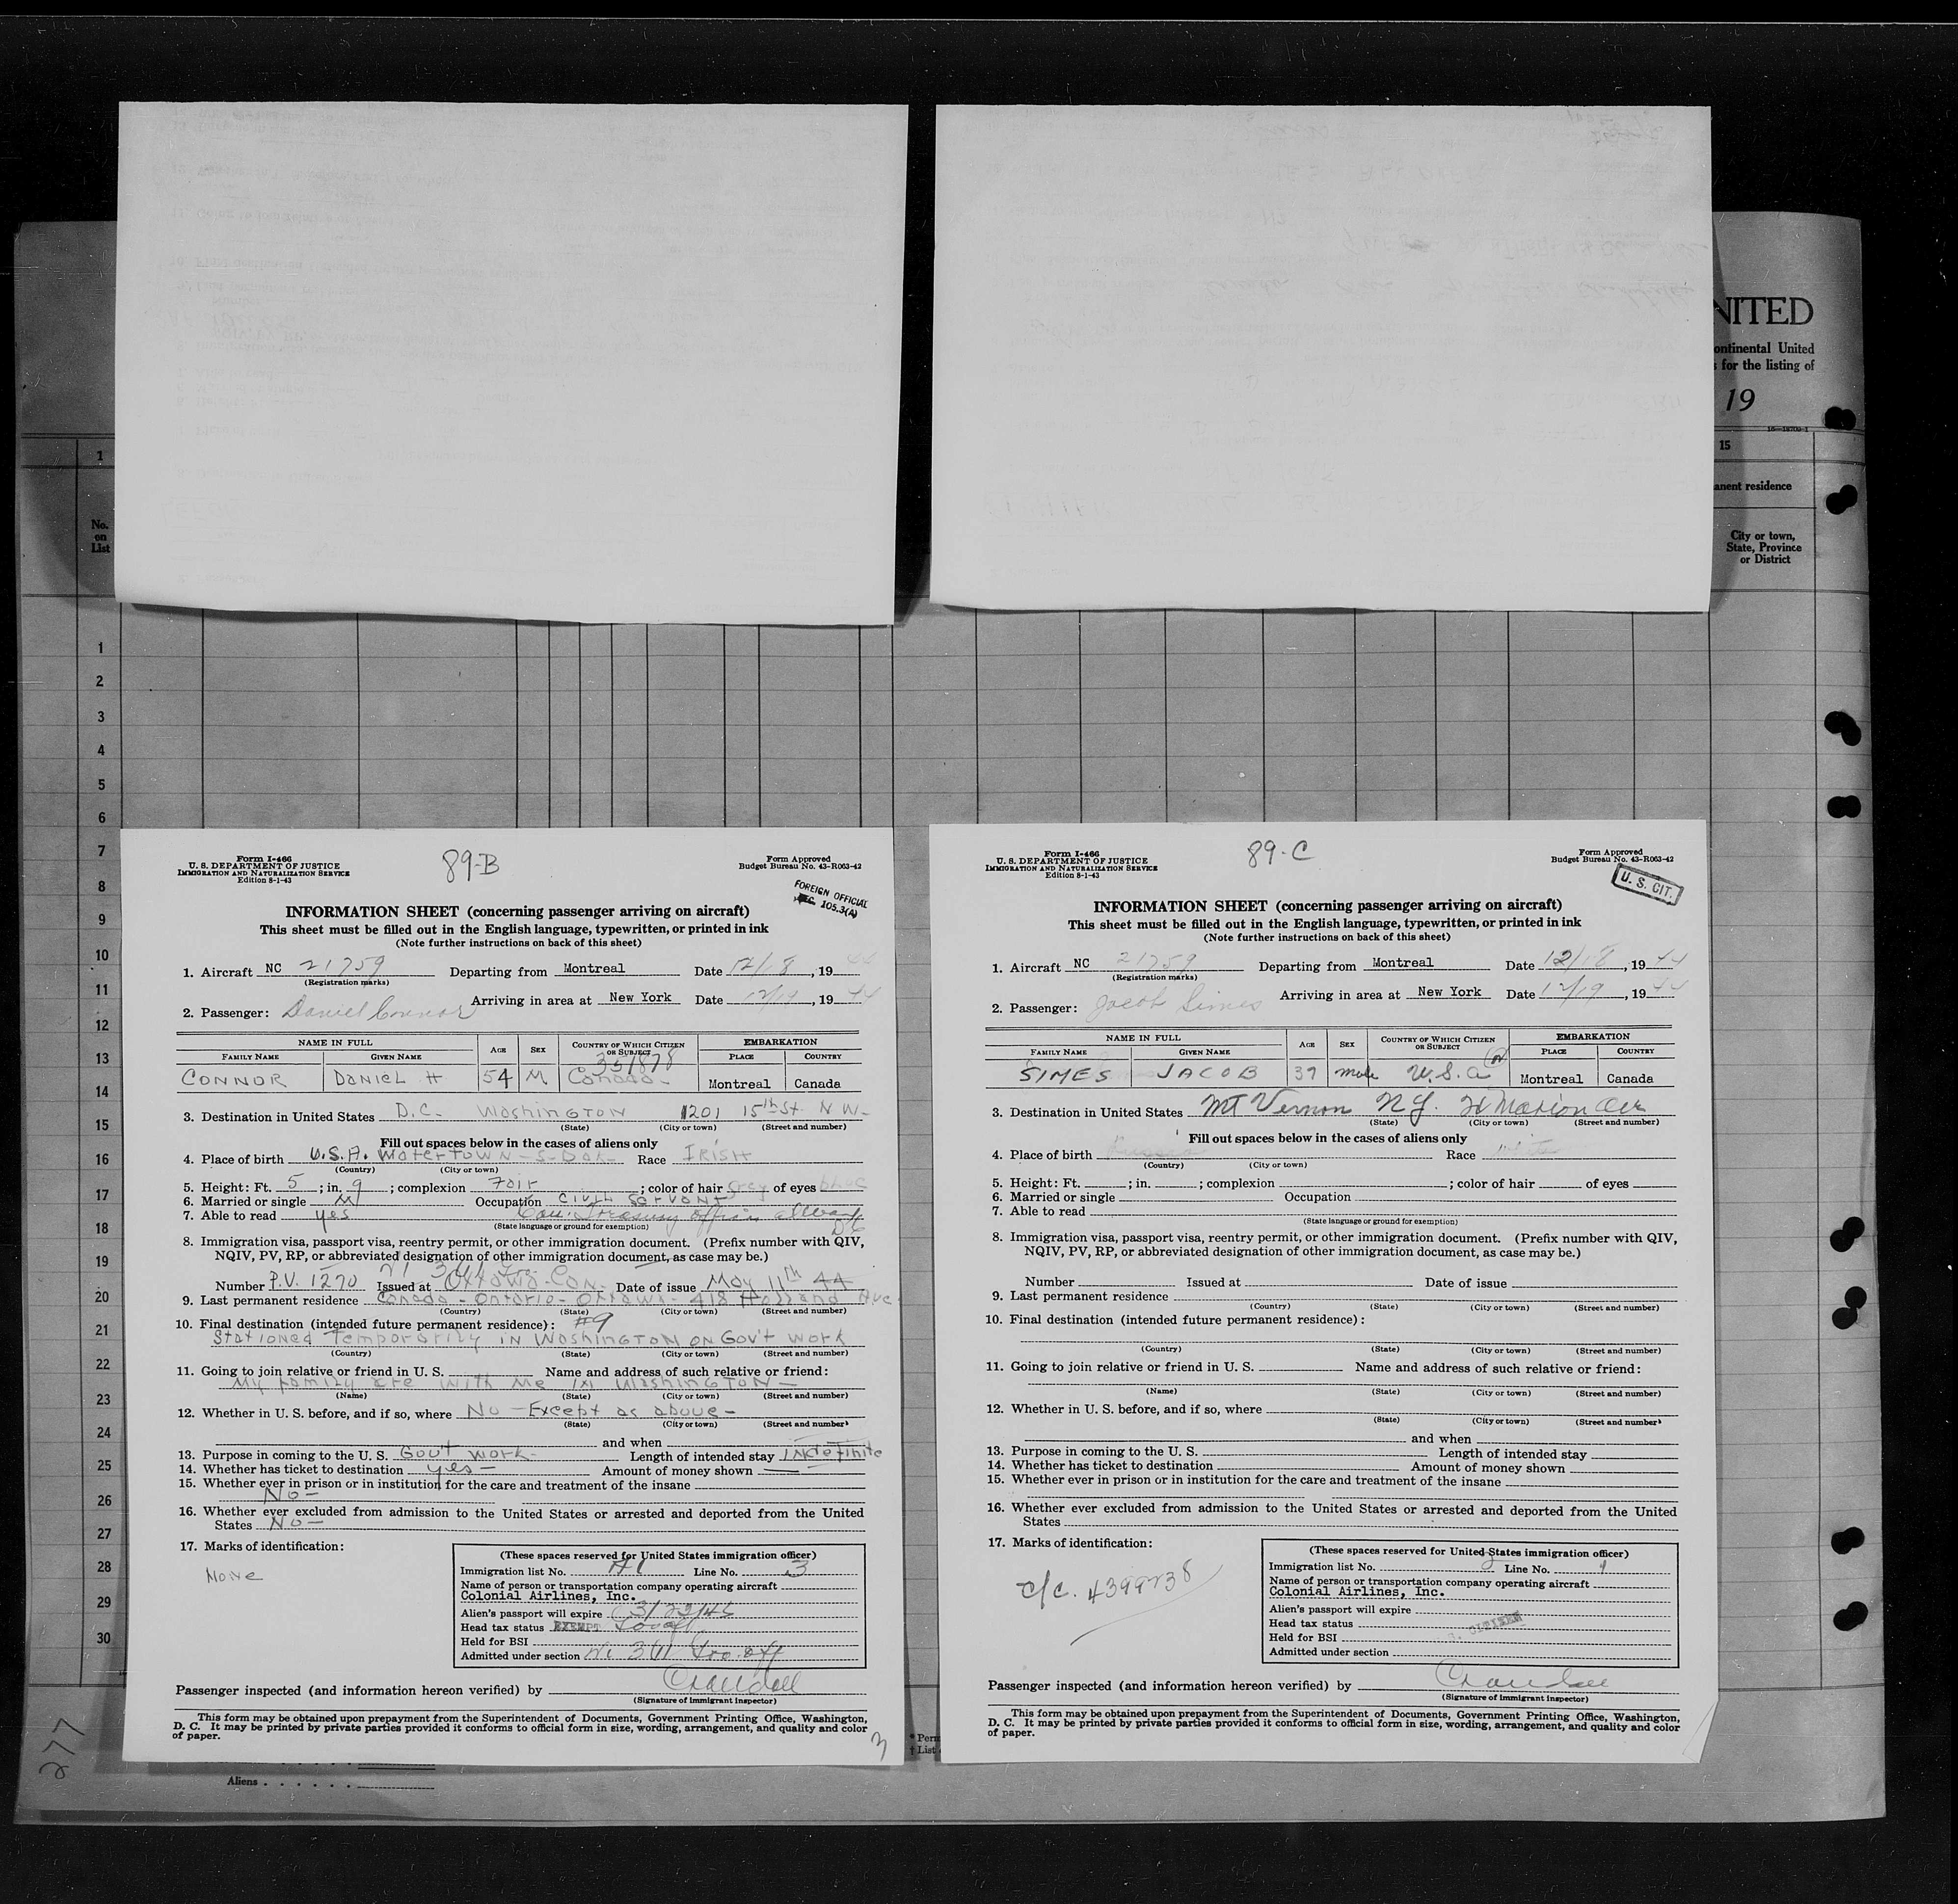 NITED
ontinental United
s for the listing of
19
16—18700-1
1
15
anent residence
No.
on
List
City or town,
State, Province
or District
1
2
3
4
5
6
7
8
9
10
11
12
13
14
15
16
17
18
19
20
21
22
23
24
25
26
27
28
29
30
277
Aliens
* Perm
† List
Form I-466
U. S. DEPARTMENT OF JUSTICE
IMMIGRATION AND NATURALIZATION SERVICE
Edition 8-1-43
89-B
Form Approved
Budget Bureau No. 43-R063-42
FOREIGN OFFICIAL
SEC 105.3(A)
INFORMATION SHEET (concerning passenger arriving on aircraft)
This sheet must be filled out in the English language, typewritten, or printed in ink
(Note further instructions on back of this sheet)
1. Aircraft NC 21759 Departing from Montreal Date 12/18, 1944
(Registration marks)
Arriving in area at New York Date 12/19, 1944
2. Passenger: Daniel Connor
NAME IN FULL AGE SEX COUNTRY OF WHICH CITIZEN OR SUBJECT EMBARKATION
FAMILY NAME GIVEN NAME PLACE COUNTRY
351878
CONNOR DANIEL H 54 M Canada Montreal Canada
3. Destination in United States D.C. WASHINGTON 1201 15th St. N W-
(State) (City or town) (Street and number)
Fill out spaces below in the cases of aliens only
4. Place of birth U.S.A. Watertown - S-Dak- Race IRISH
(Country) (City or town)
5. Height: Ft. 5; in. 9; complexion Fair; color of hair Grey of eyes blue
6. Married or single M Occupation CIVIL SERVANT
7. Able to read yes Can. Treasury Office
(State language or ground for exemption)
8. Immigration visa, passport visa, reentry permit, or other immigration document. (Prefix number with QIV,
NQIV, PV, RP, or abbreviated designation of other immigration document, as case may be.)
Number P.V. 1270 Issued at Ottawa-Can. Date of issue May 11th 44
9. Last permanent residence Canada - Ontario - Ottawa - 418 Holland Ave
(Country) (State) (City or town) (Street and number)
10. Final destination (intended future permanent residence): #9
Stationed Temporarily IN WASHINGTON ON Gov't work
(Country) (State) (City or town) (Street and number)
11. Going to join relative or friend in U. S. Name and address of such relative or friend:
My family are with me in WASHINGTON -
(Name) (State) (City or town) (Street and number)
12. Whether in U. S. before, and if so, where No - Except as above -
(State) (City or town) (Street and number)
and when
13. Purpose in coming to the U. S. Gov't work- Length of intended stay INdefinite
14. Whether has ticket to destination yes - Amount of money shown —
15. Whether ever in prison or in institution for the care and treatment of the insane
No -
16. Whether ever excluded from admission to the United States or arrested and deported from the United
States No -
17. Marks of identification:
None
(These spaces reserved for United States immigration officer)
Immigration list No. A1 Line No. 3
Name of person or transportation company operating aircraft
Colonial Airlines, Inc.
Alien's passport will expire 3/23/46
Head tax status EXEMPT
Held for BSI
Admitted under section
Passenger inspected (and information hereon verified) by Crandall
(Signature of immigrant inspector)
This form may be obtained upon prepayment from the Superintendent of Documents, Government Printing Office, Washington,
D. C. It may be printed by private parties provided it conforms to official form in size, wording, arrangement, and quality and color
of paper.
3
Form I-466
U. S. DEPARTMENT OF JUSTICE
IMMIGRATION AND NATURALIZATION SERVICE
Edition 8-1-43
89-C
Form Approved
Budget Bureau No. 43-R063-42
U. S. CIT.
INFORMATION SHEET (concerning passenger arriving on aircraft)
This sheet must be filled out in the English language, typewritten, or printed in ink
(Note further instructions on back of this sheet)
1. Aircraft NC 21759 Departing from Montreal Date 12/18, 1944
(Registration marks)
Arriving in area at New York Date 12/19, 1944
2. Passenger: Jacob Simes
NAME IN FULL AGE SEX COUNTRY OF WHICH CITIZEN OR SUBJECT EMBARKATION
FAMILY NAME GIVEN NAME PLACE COUNTRY
SIMES JACOB 39 male U.S.A Montreal Canada
3. Destination in United States Mt Vernon N.Y. Marion Ave
(State) (City or town) (Street and number)
Fill out spaces below in the cases of aliens only
4. Place of birth Russia Race white
(Country) (City or town)
5. Height: Ft. ; in. ; complexion ; color of hair of eyes
6. Married or single Occupation
7. Able to read
(State language or ground for exemption)
8. Immigration visa, passport visa, reentry permit, or other immigration document. (Prefix number with QIV,
NQIV, PV, RP, or abbreviated designation of other immigration document, as case may be.)
Number Issued at Date of issue
9. Last permanent residence
(Country) (State) (City or town) (Street and number)
10. Final destination (intended future permanent residence):
(Country) (State) (City or town) (Street and number)
11. Going to join relative or friend in U. S. Name and address of such relative or friend:
(Name) (State) (City or town) (Street and number)
12. Whether in U. S. before, and if so, where
(State) (City or town) (Street and number)
and when
13. Purpose in coming to the U. S. Length of intended stay
14. Whether has ticket to destination Amount of money shown
15. Whether ever in prison or in institution for the care and treatment of the insane
16. Whether ever excluded from admission to the United States or arrested and deported from the United
States
17. Marks of identification:
c/c. 4399738
(These spaces reserved for United States immigration officer)
Immigration list No. 2 Line No. 1
Name of person or transportation company operating aircraft
Colonial Airlines, Inc.
Alien's passport will expire
Head tax status
Held for BSI CITIZEN
Admitted under section
Passenger inspected (and information hereon verified) by Crandall
(Signature of immigrant inspector)
This form may be obtained upon prepayment from the Superintendent of Documents, Government Printing Office, Washington,
D. C. It may be printed by private parties provided it conforms to official form in size, wording, arrangement, and quality and color
of paper.